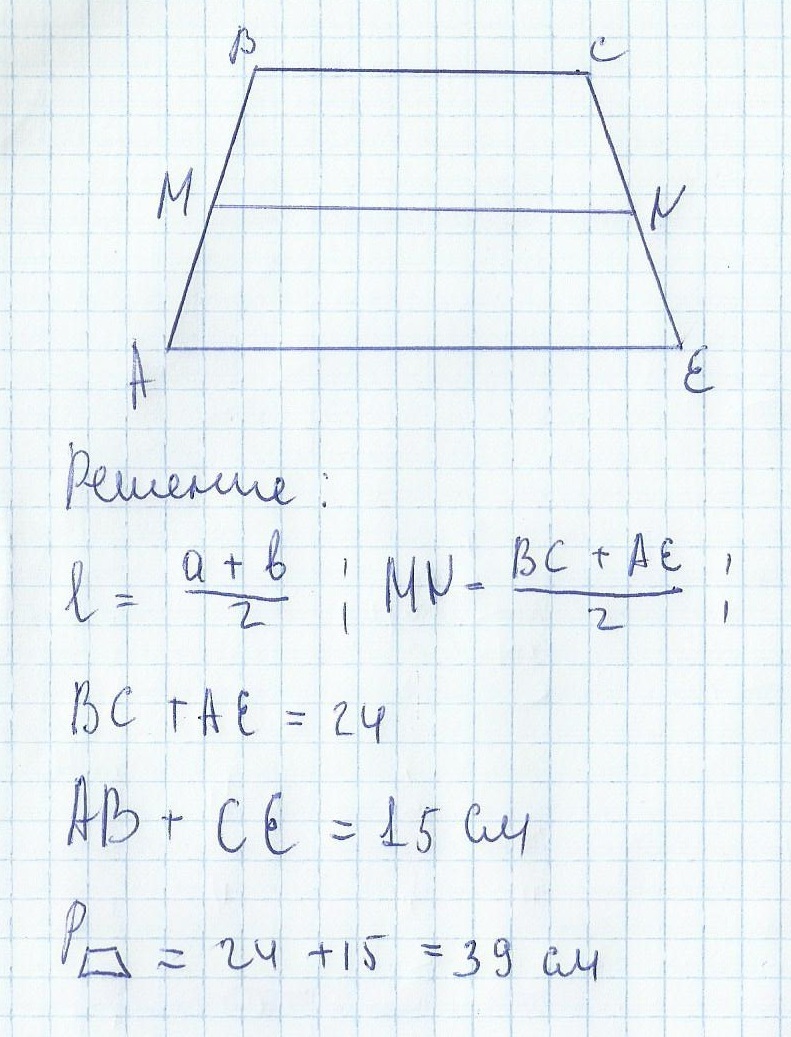 B C
M N
A E
Решение:
l = a + b / 2 ; MN = BC + AE / 2 ;
BC + AE = 24
AB + CE = 15 см
P▱ = 24 + 15 = 39 см